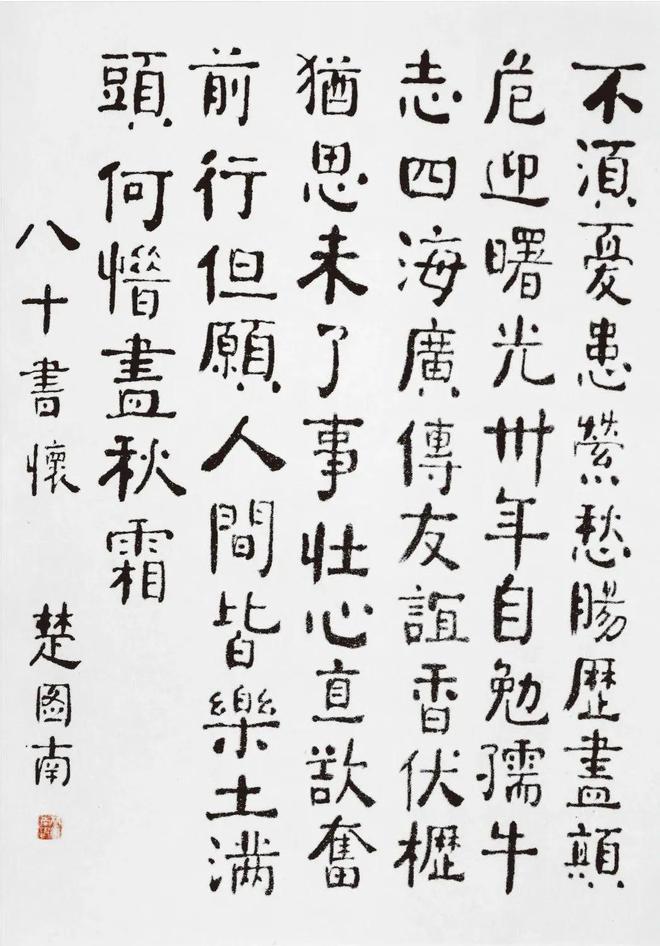 不須憂患縈愁腸歷盡顛
危迎曙光卅年自勉孺牛
志四海廣傳友誼香伏櫪
猶思未了事壯心直欲奮
前行但願人間皆樂土滿
頭何惜盡秋霜
八十書懷 楚圖南